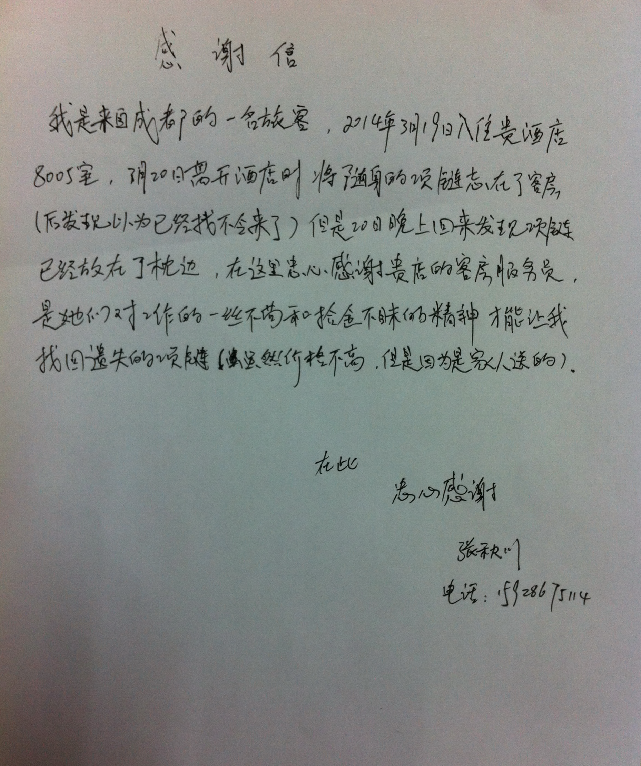 感谢信
我是来自成都的一名旅客，2014年3月19日入住贵酒店
8005室，3月20日离开酒店时将随身的项链忘在了客房
（后发现以为已经找不会来了）但是20日晚上回来发现项链
已经放在了枕边，在这里忠心感谢贵店的客房服务员，
是她们对工作的一丝不苟和拾金不昧的精神才能让我
找回遗失的项链（虽然价格不高，但是因为是家人送的）。
在此
忠心感谢
张秋川
电话：15928675114